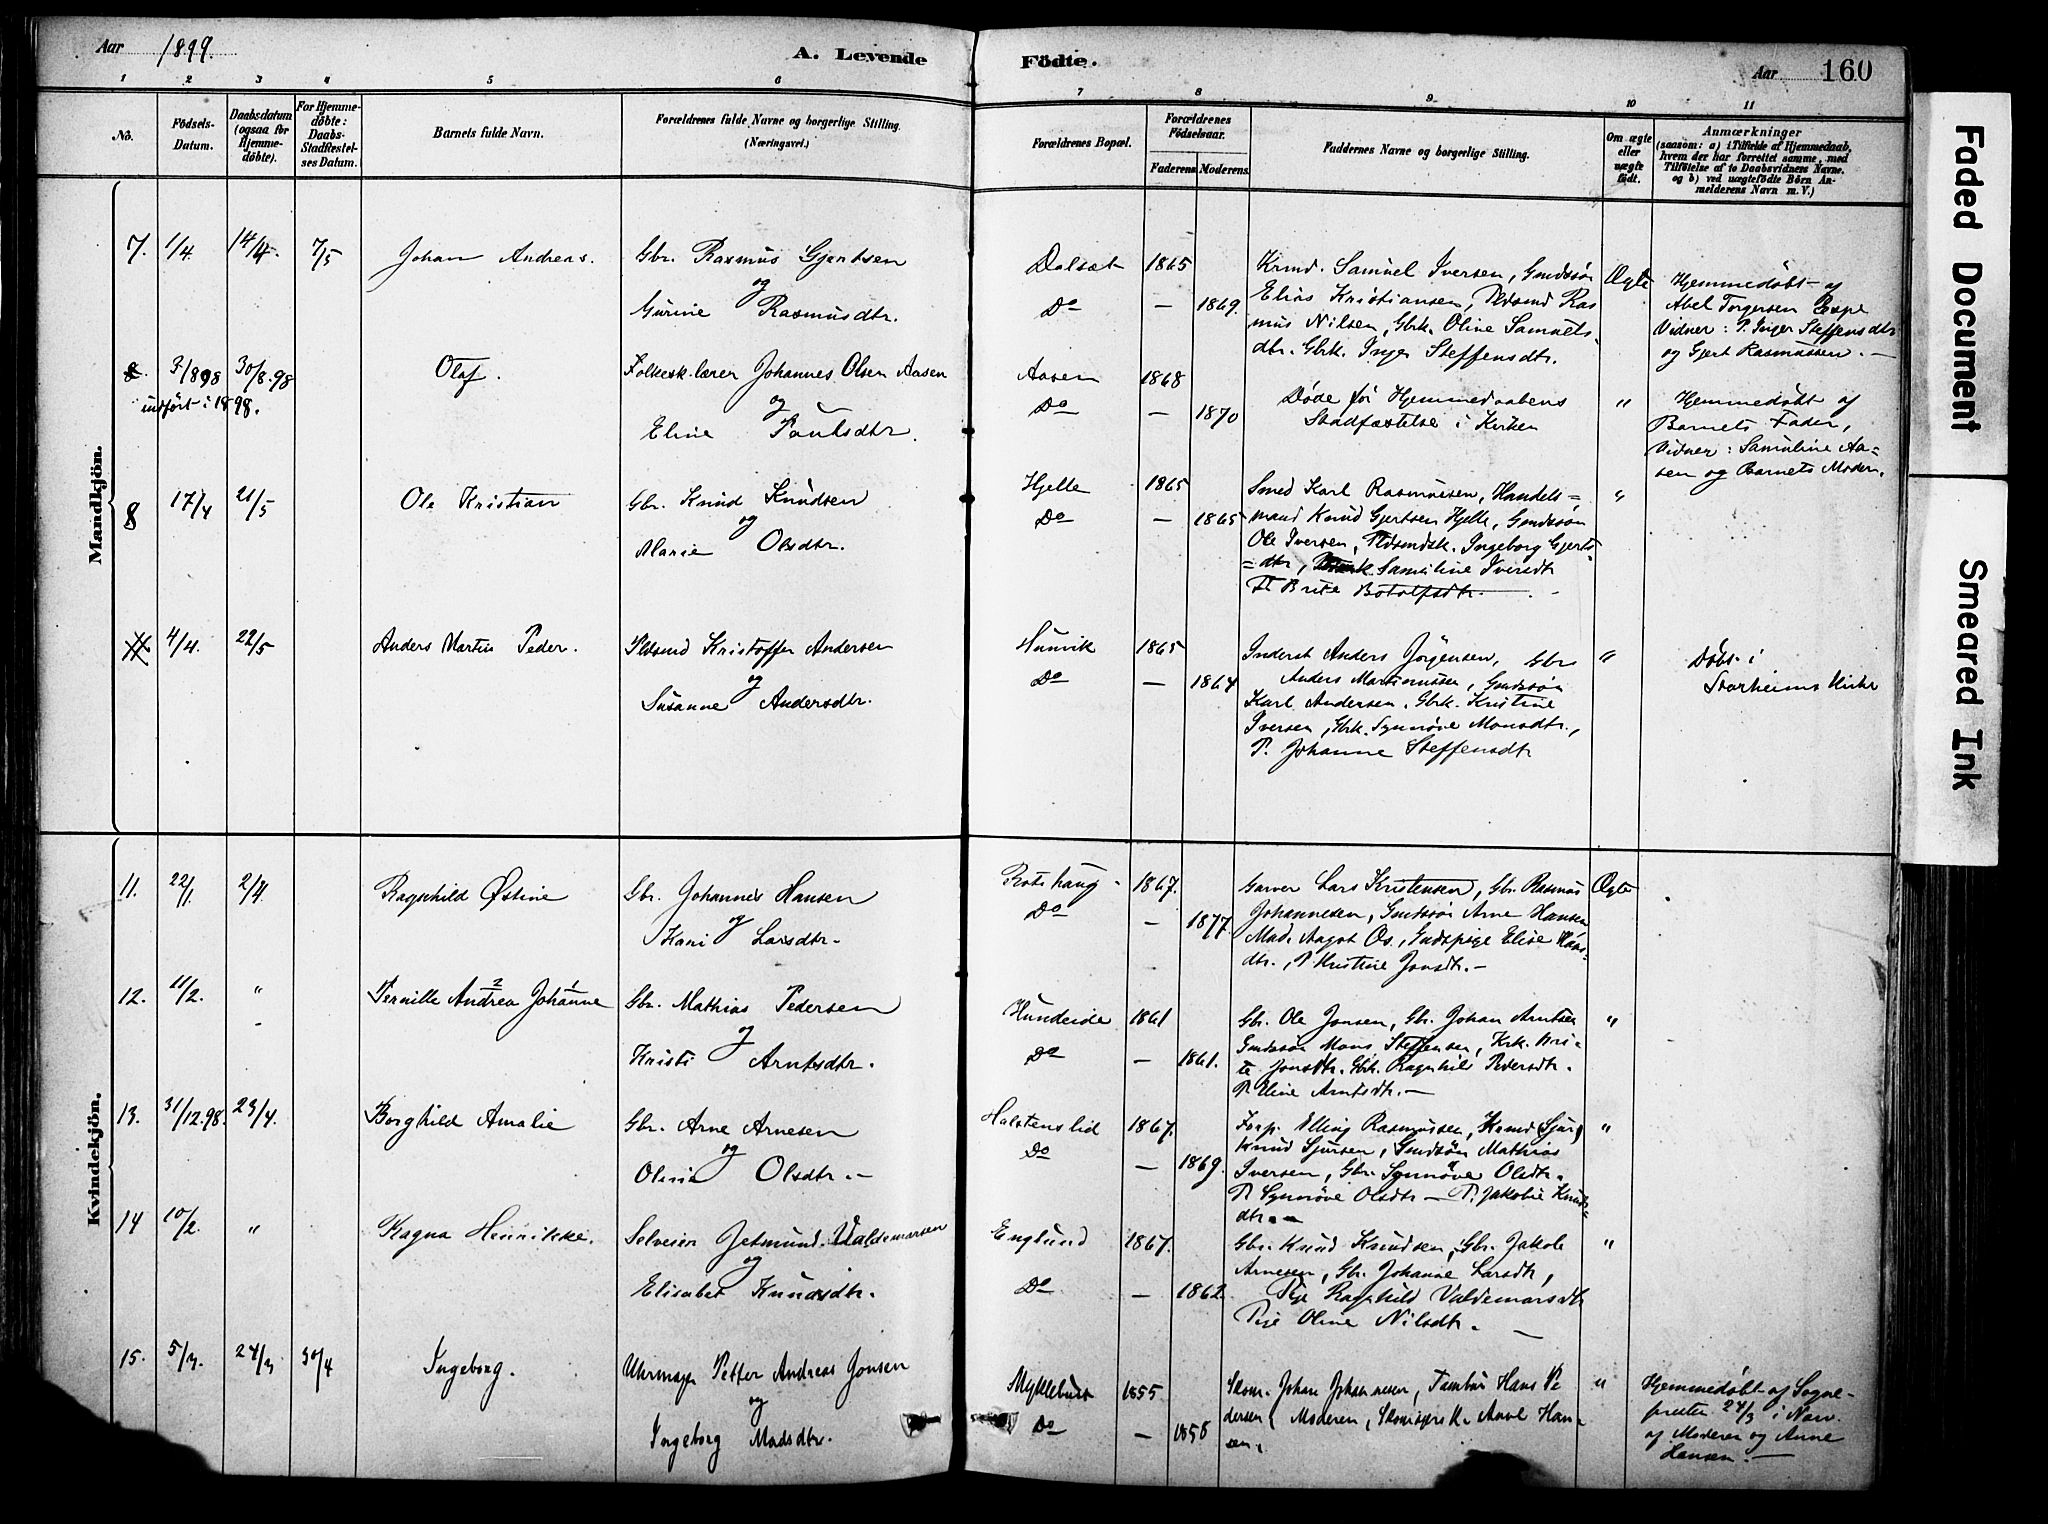 Aar 1899.
A. Levende Födte.
Aar 160
1 2 3 4 5 6 7 8 9 10 11
No.
Födsels-Datum.
Daabsdatum (ogsaa for Hjemmedöbte).
For Hjemmedöbte: Daabs-Stadfestelses Datum.
Barnets fulde Navn.
Forældrenes fulde Navne og borgerlige Stilling. (Næringsvei.)
Forældrenes Bopæl.
Forældrenes Födselsaar.
Faderens Moderens
Faddernes Navne og borgerlige Stilling.
Om ægte eller uægte födt.
Anmærkninger (saasom: a) i Tilfælde af Hjemmedaab, hvem der har forrettet samme, med Tilföielse af to Daabsvidners Navne. og b) ved uægtefödte Börn Anmelderens Navn m. V.)
Mandkjön.
7. 1/4. 14/4. 7/5 Johan Andreas. Gbr. Rasmus Gjertsen
og
Gurine Rasmusdtr.
Dalsæt 1865
Do — 1869.
Krmd. Samuel Iversen, Gmdssøn
Elias Kristiansen, Pldsmd Ras
mus Nilsen, Gbrk. Oline Samuels
dtr. Gbrk. Inger Steffensdtr.
Ægte
Hjemmedøbt af
Abel Torgersen Espe
Vidner: P. Inger Steffensdtr
og Gjert Rasmussen. —
8. 3/8 98 30/8.98 Olaf. Folkesk.lærer Johannes Olsen Aasen
indført i 1898.
og
Eline Paulsdtr.
Aasen 1868
Do — 1870
Døde før Hjemmedaabens
Stadfæstelse i Kirken
"
Hjemmedøbt af
Barnets Fader,
Vidner: Samuline Aa=
sen og Barnets Moder.
8 17/4 21/5 Ole Kristian Gbr. Knud Knudsen
og
Marie Olsdtr.
Hjelle 1865
Do — 1865
Smed Karl Rasmussen, Handels=
mand Knud Gjertsen Hjelle, Gmdssøn
Ole Iversen, Pldsmdsk. Ingeborg Gjerts
=dtr, Samiline Iversdtr
Brite Botolfsdtr. —
"
4/4. 22/5 Anders Martin Peder. Pldsmd Kristoffer Andersen
og
Susanne Andersdtr.
Hunvik 1865
Do — 1864
Inderst Anders Jørgensen, Gbr
Anders Martinussen, Gmdssøn
Karl Andersen, Gbrk. Kristine
Iversen, Gbrk. Synnøve Monsdtr.,
P. Johanne Steffensdtr
"
Døbt i
Starheims Kirke
Kvindekjön.
11. 22/1. 2/4. Ragnhild Østine Gbr. Johannes Hansen
og
Kari Larsdtr.
Rotshaug 1867.
Do — 1877.
Garver Lars Kristensen, Gbr. Rasmus
Johannesen, Gmdssøn Arne Hansen
Mad. Aagot Os., Gmdspige Elise Hans-
dtr., P. Kristine Jonsdtr. —
Ægte
12. 11/2. " Pernille Andrea 2 Johanne 1 Gbr. Mathias Pedersen
og
Kristi Arntsdtr.
Hundeide 1861
Do — 1861.
Gbr. Ole Jonsen, Gbr. Johan Arntsen
Gmdssøn Mons Steffensen, Krk. Bri-
te Jonsdtr. Gbrk. Ragnhild Pedersdtr.
P. Eline Arntsdtr. —
"
13. 31/12.98. 23/4. Borghild Amalie Gbr. Arne Arnesen
og
Olivia Olsdtr. —
Halstenslid 1867.
Do — 1869.
Forp. Elling Rasmussen, Krmd (Sjur)
Knud Sjursen, Gmdssøn Mathias
Iversen, Gbr. Synnøve Olsdtr.
P. Synnøve Olsdtr — P. Jakobie Knuds=
dtr. —
"
14 10/2. " Ragna Henrikke. Selveier Jetmund Valdemarsen
og
Elisabet Knudsdtr.
Englund 1867.
Do — 1862.
Gbr. Knud Knudsen, Gbr. Jakob
Arnesen, Gbr. Johanne Larsdtr,
Pige Ragnhild Valdemarsdtr
Pige Oline Nilsdtr. —
"
15. 5/3. 24/3 30/4 Ingeborg. Uhrmager Petter Andreas Jonsen
og
Ingeborg Madsdtr.
Myklebust 1855
Do — 1858
Skom. Johan Johannesen, Tambur Hans Pe
dersen, Moderen, Skomagersk. Anne Han=
sen,
"
Hjemmedøbt af Sogne-
presten 24/3 i Nærv.
af Moderen og Anne
Hansen. —
Faded Document
Smeared Ink